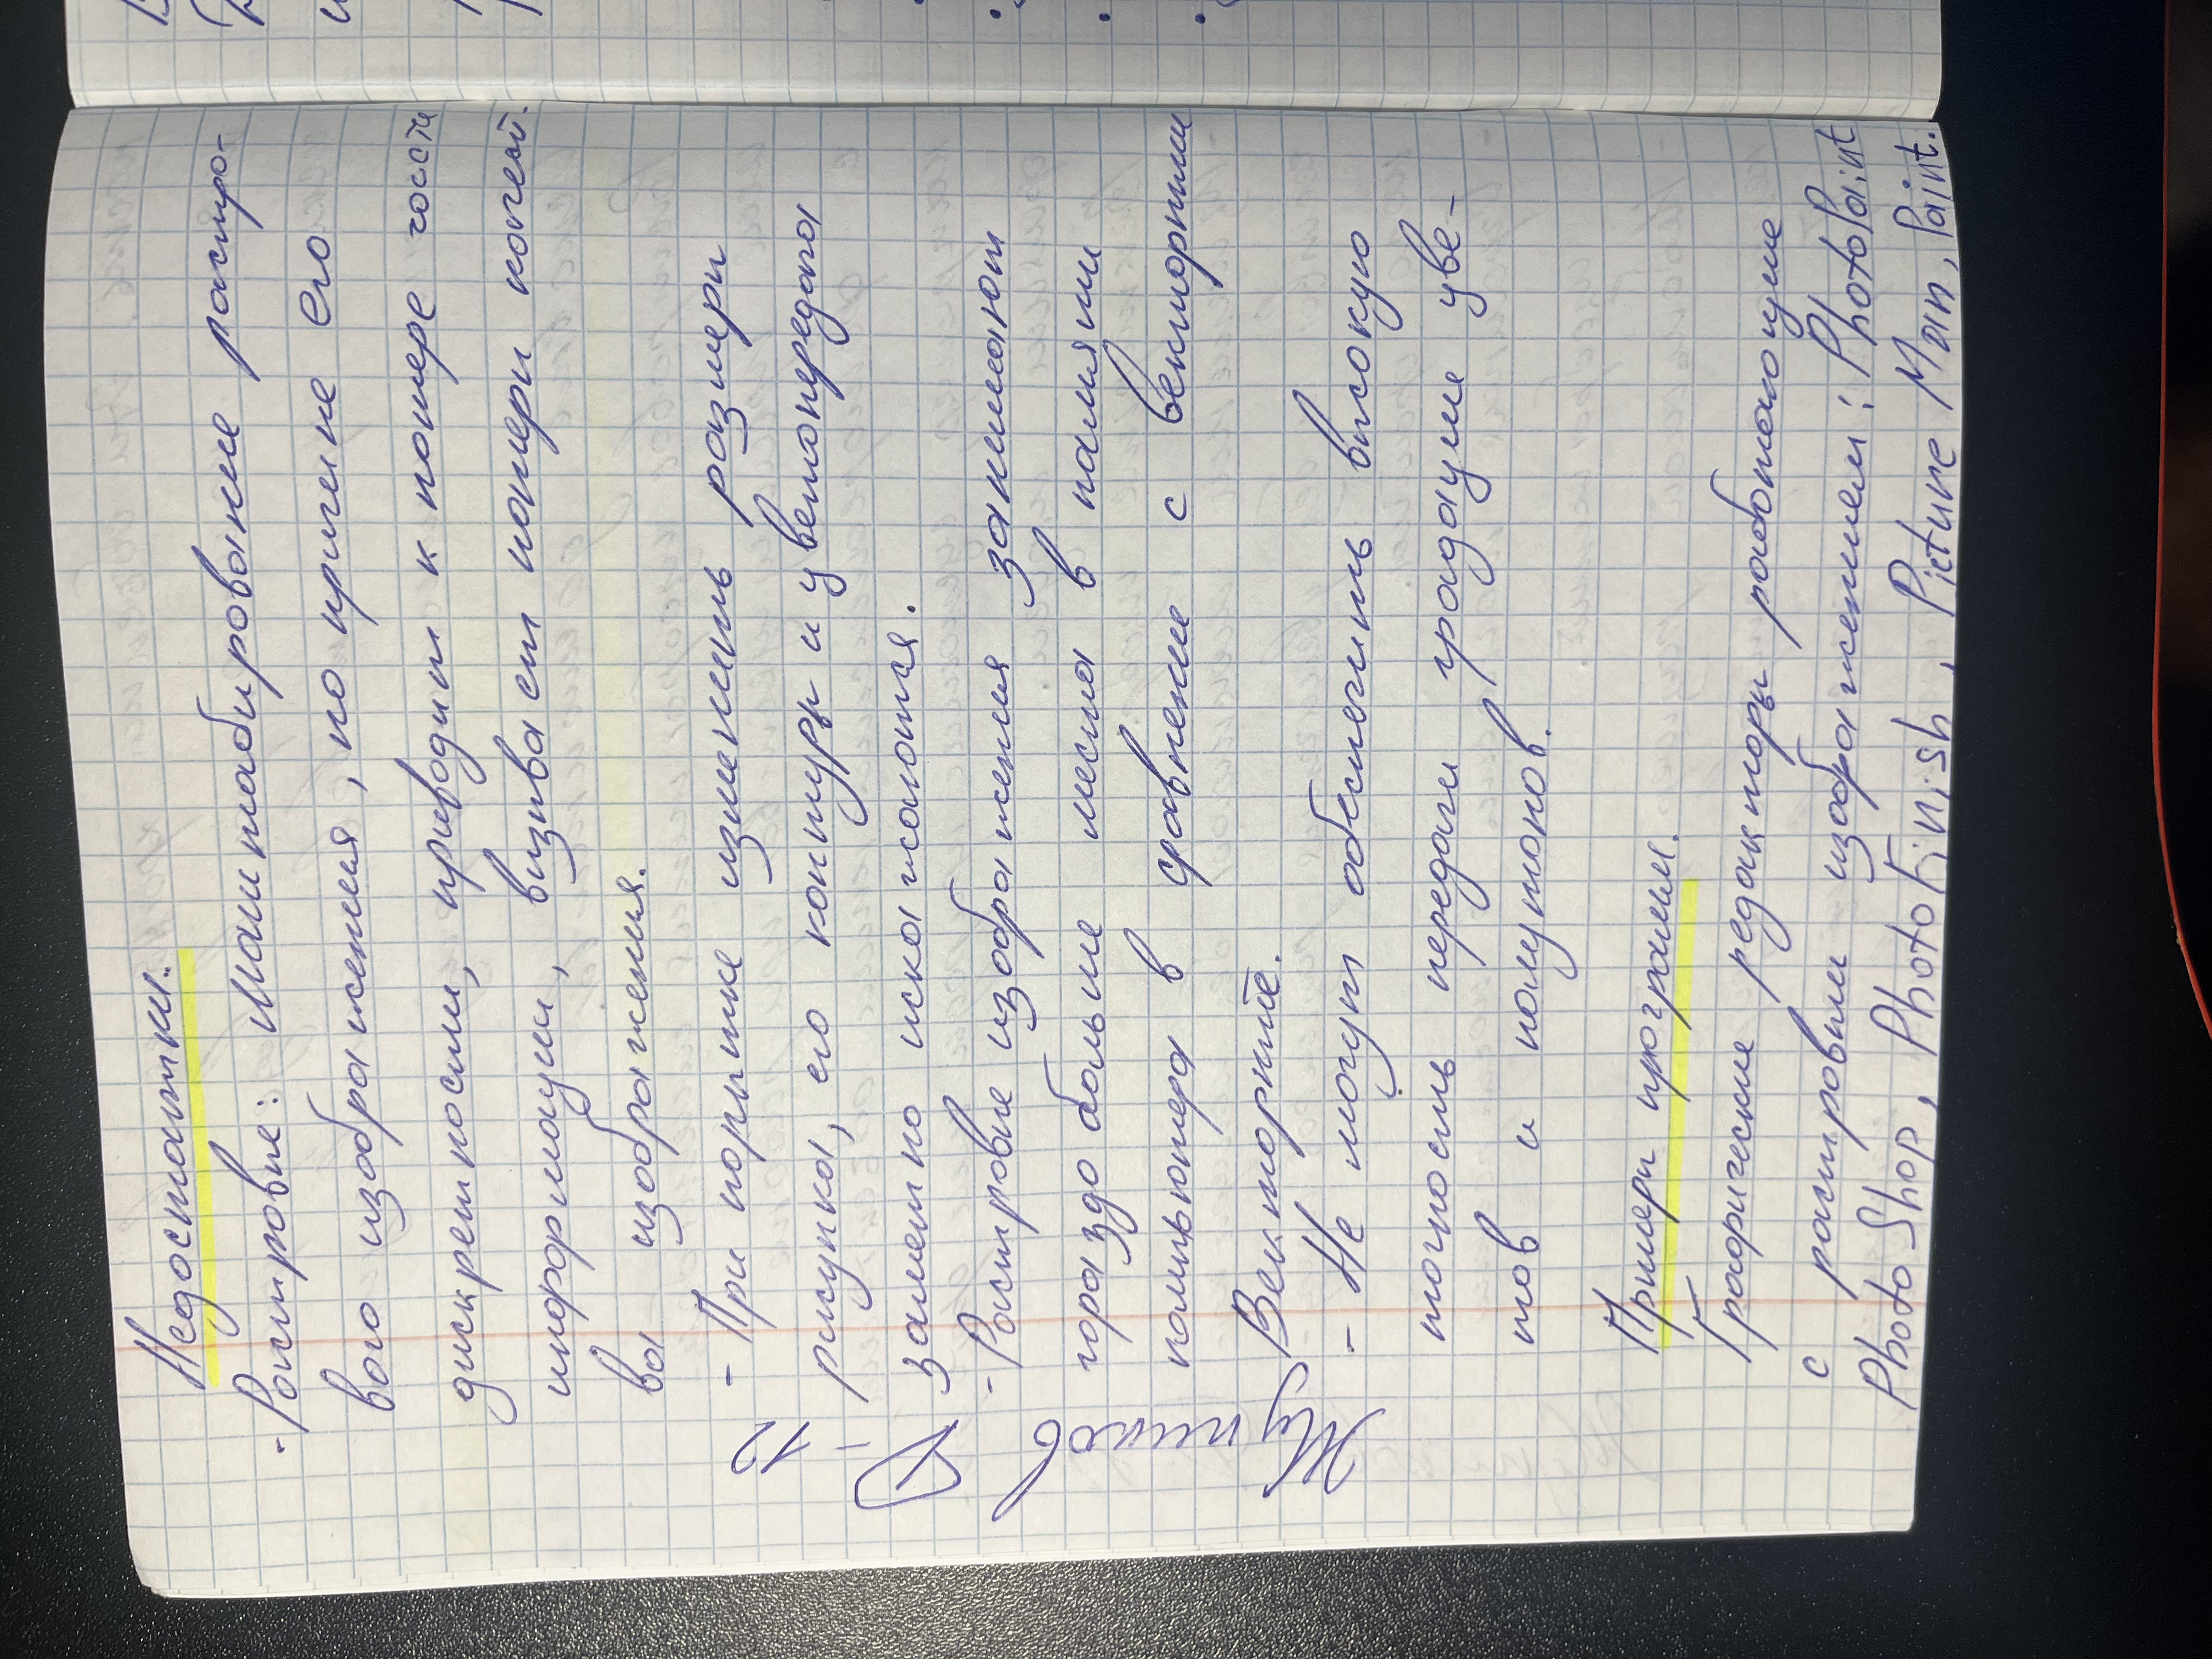 Недостатки.
- Растровые: Масштабирование растро-
вого изображения, по причине его
дискретности, приводит к потере части
информации, визивает потери качест-
ва изображения.
- При попытке изменить размеры
рисунка, его контуры и цветопередача
заметно искажаются.
- Растровые изображения занимают
гораздо больше места в памяти
компьютера в сравнение с векторными
Векторные.
- Не могут обеспечить высокую
точность передачи градации цве-
тов и полутонов.
Примеры програм.
Графические редакторы работающие
с растровым изображением: PhotoPaint
PhotoShop, PhotoFinish, Picture Man, Paint.
12